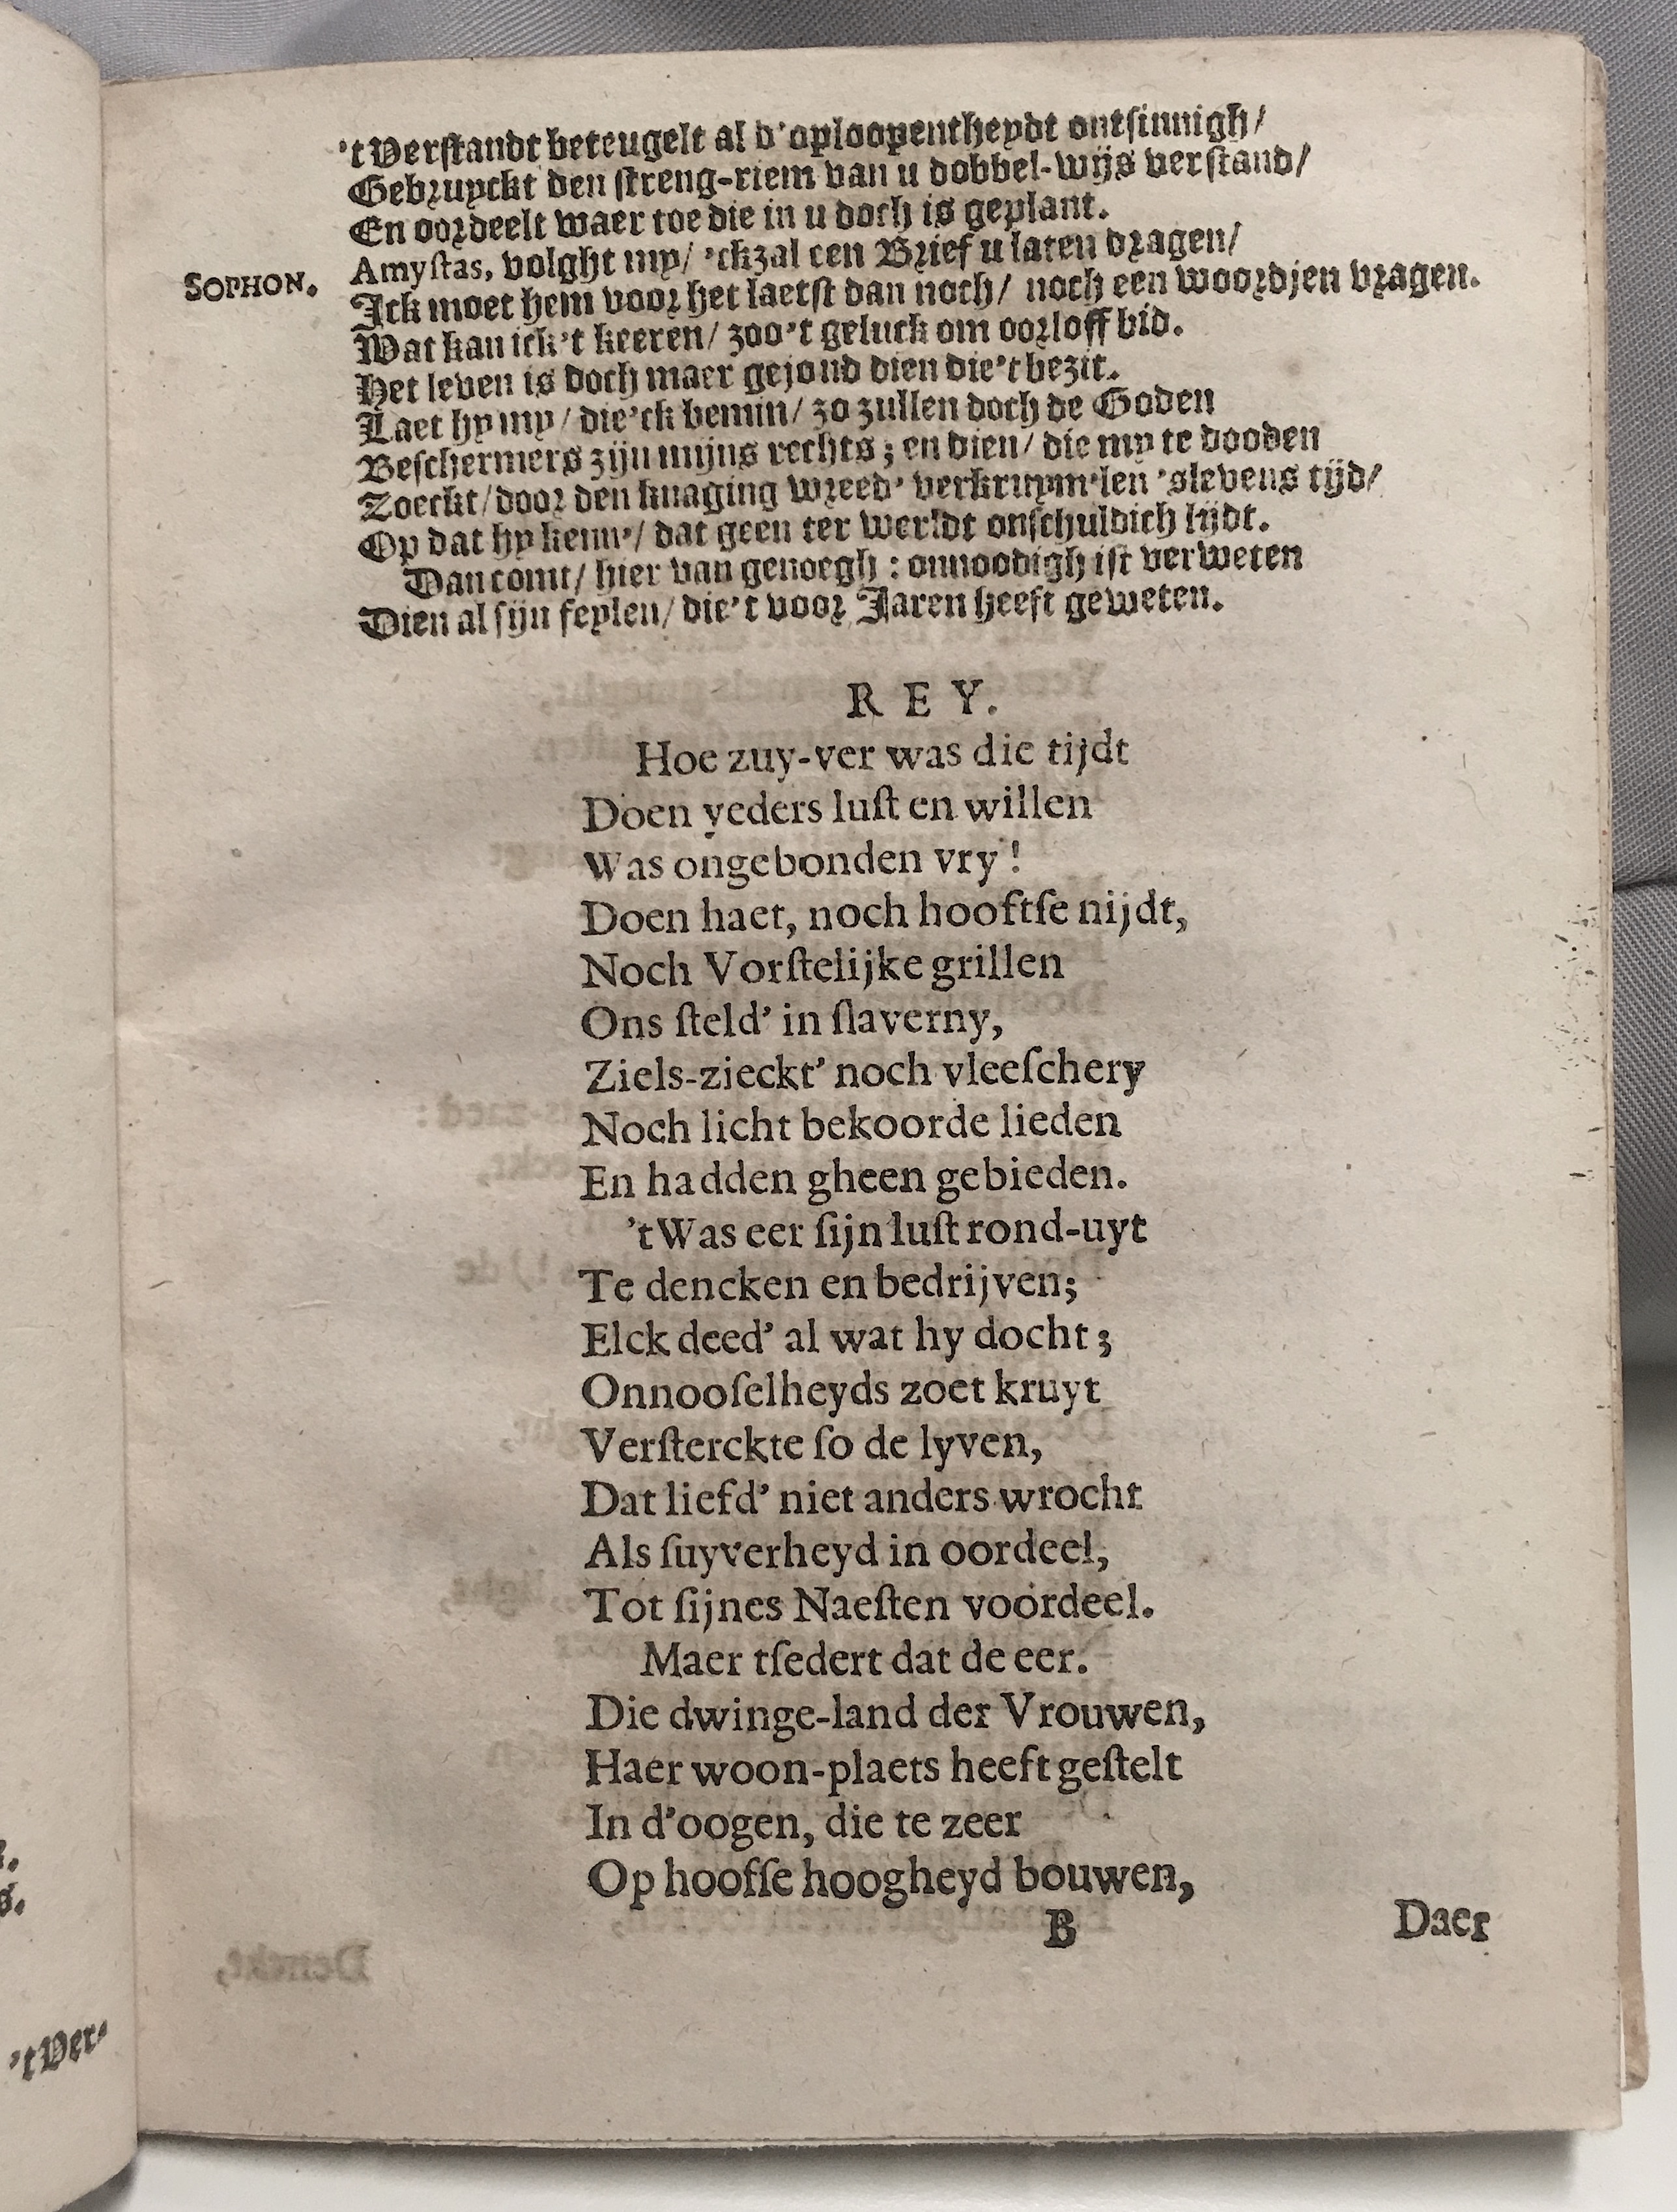 'tVerstandt beteugelt al d'oploopentheydt ontsinnigh/
Gebruyckt den streng-riem van u dobbel-wijs verstand/
En oordeelt waer toe die in u doch is geplant.
Amystas, volght my/ 'ckzal een Brief u laten dragen/
SOPHON. Ick moet hem voor het laetst dan noch/ noch een woordjen vragen.
Wat kan ick't keeren/ zoo't geluck om oorloff bid.
Het leven is doch maer gejond dien die't bezit.
Laet hy my/ die'ck bemin/ zo zullen doch de Goden
Beschermers zijn mijns rechts; en dien/ die my te dooden
Zoeckt/ door den knaging wreed' verkruym'len 'slevens tijd/
Op dat hy kenn'/ dat geen ter werldt onschuldich lijdt.
Dan comt/ hier van genoegh: onnoodigh ist verweten
Dien al sijn feylen/ die't voor Jaren heeft geweten.
REY.
Hoe zuy-ver was die tijdt
Doen yeders luſt en willen
Was ongebonden vry!
Doen haet, noch hooftſe nijdt,
Noch Vorſtelijke grillen
Ons ſteld' in ſlaverny,
Ziels-zieckt' noch vleeſchery
Noch licht bekoorde lieden
En hadden gheen gebieden.
'tWas eer ſijn luſt rond-uyt
Te dencken en bedrijven;
Elck deed' al wat hy docht;
Onnooſelheyds zoet kruyt
Verſterckte ſo de lyven,
Dat liefd' niet anders wrocht
Als ſuyverheyd in oordeel,
Tot ſijnes Naeſten voordeel.
Maer tſedert dat de eer.
Die dwinge-land der Vrouwen,
Haer woon-plaets heeft geſtelt
In d'oogen, die te zeer
Op hoofſe hoogheyd bouwen,
B Daer
'tVer-